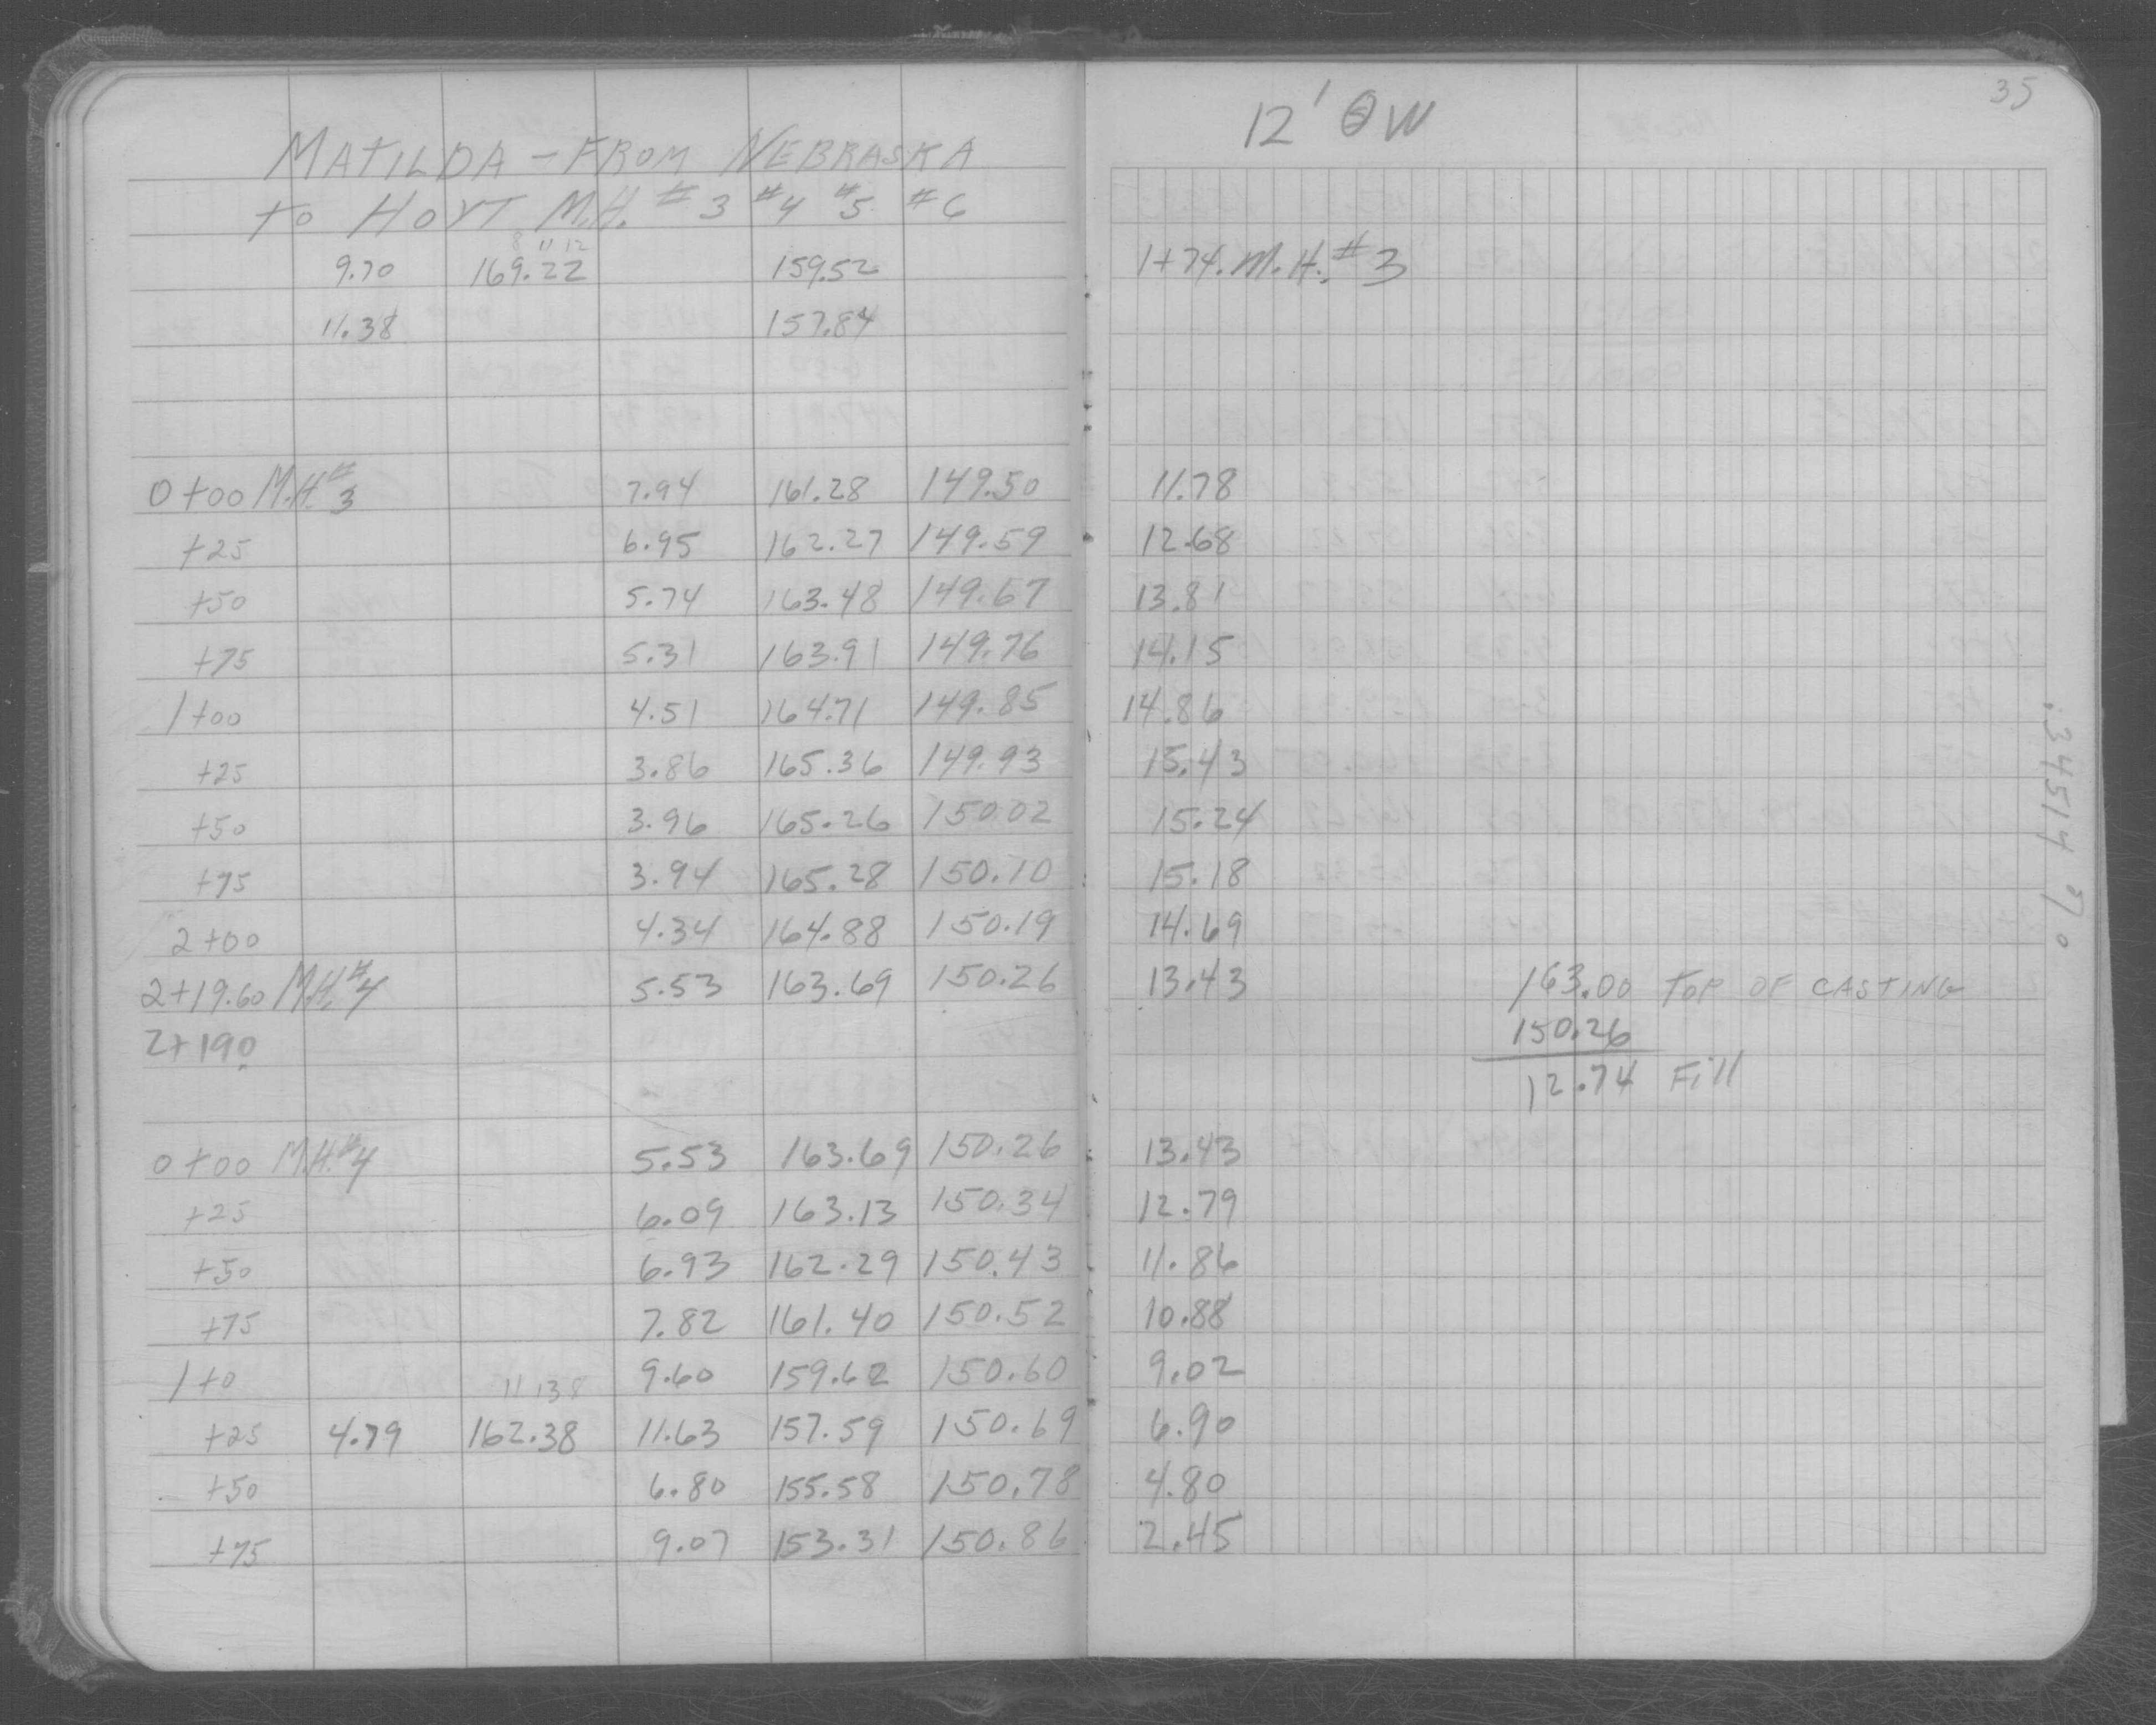 35
MATILDA - FROM NEBRASKA 12' OW
to HOYT M.H. #3 #4 #5 #6
8 11 12
9.70 169.22 159.52 1+74. M.H. #3
11.38 157.84
0+00 M.H.#3 7.94 161.28 149.50 11.78
+25 6.95 162.27 149.59 12.68
+50 5.74 163.48 149.67 13.81
+75 5.31 163.91 149.76 14.15
1+00 4.51 164.71 149.85 14.86
+25 3.86 165.36 149.93 15.43
+50 3.96 165.26 150.02 15.24
+75 3.94 165.28 150.10 15.18
2+00 4.34 164.88 150.19 14.69
2+19.60 M.H.#4 5.53 163.69 150.26 13.43 163.00 TOP OF CASTING
2+190 150.26
12.74 Fill
0+00 M.H.#4 5.53 163.69 150.26 13.43
+25 6.09 163.13 150.34 12.79
+50 6.93 162.29 150.43 11.86
+75 7.82 161.40 150.52 10.88
1+0 9.60 159.62 150.60 9.02
11 13 8
+25 4.79 162.38 11.63 157.59 150.69 6.90
+50 6.80 155.58 150.78 4.80
+75 9.07 153.31 150.86 2.45
.34514 %